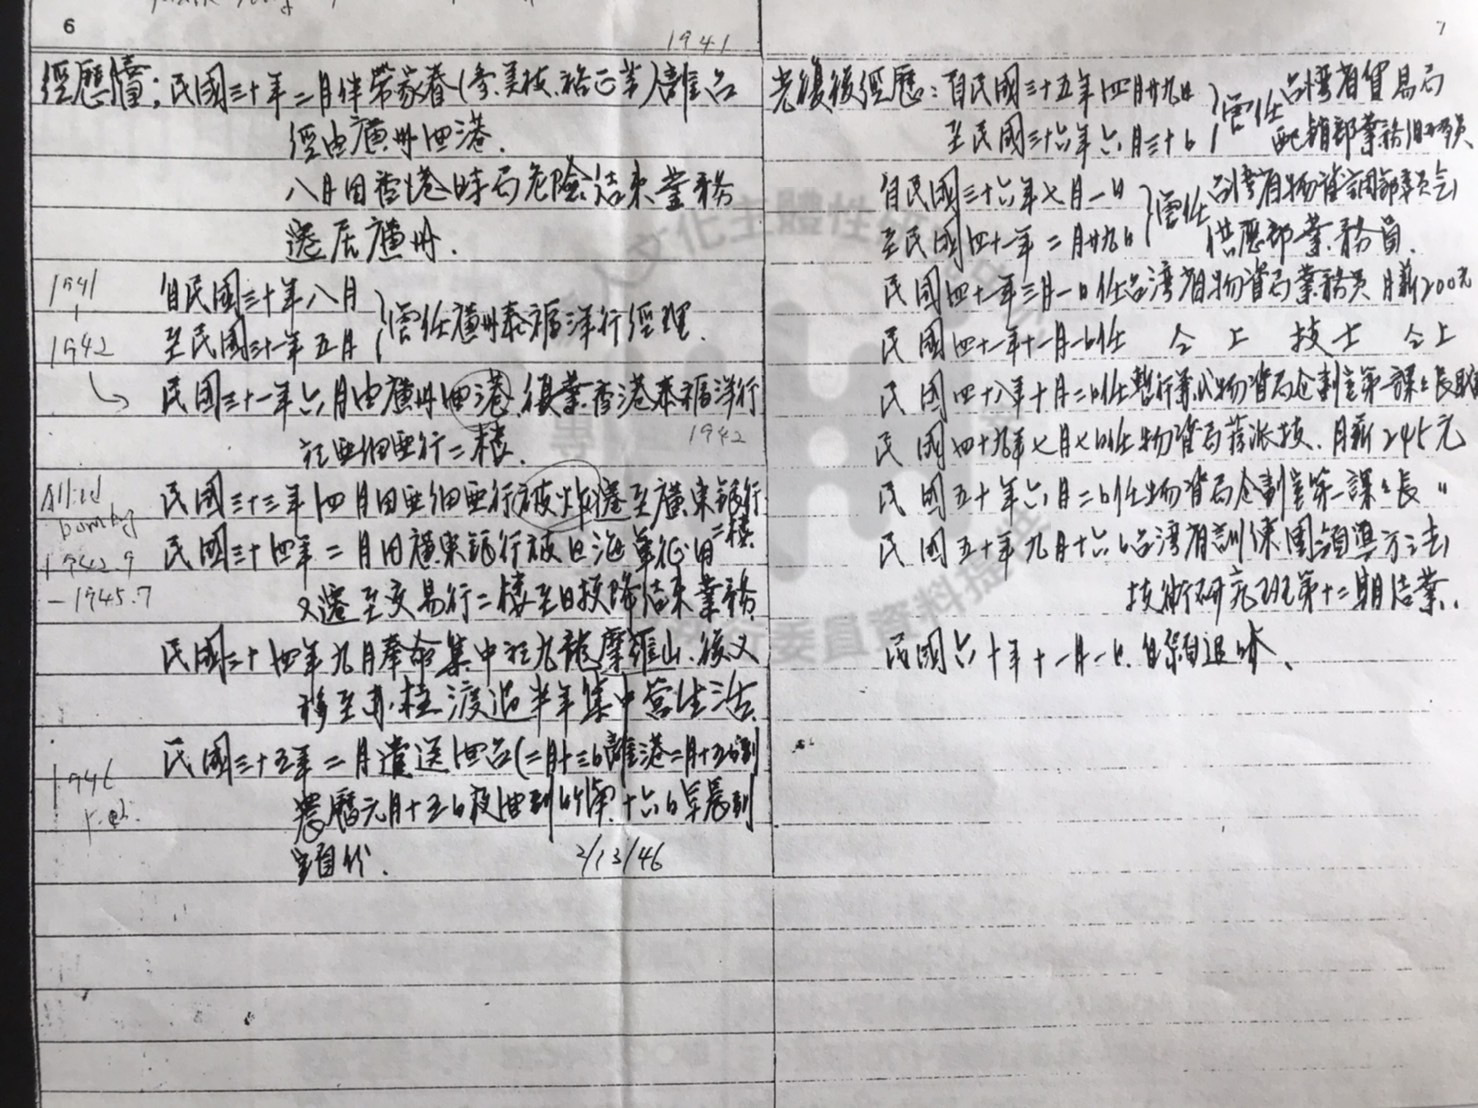 6
1941
經歷續：民國三十年二月伴帶家眷(李.美枝.裕正等)離台
經由廣州回港.
八月因香港時局危險結束業務
遷居廣州.
1941
1942
自民國三十年八月
至民國三十一年五月
曾任廣州泰福洋行經理.
民國三十一年六月由廣州回港復業香港泰福洋行
1942
於亞細亞行二樓.
Allied bombing
1942.9
-1945.7
民國三十三年四月因亞細亞行被炸遷至廣東銀行
二樓
民國三十四年二月因廣東銀行被日海軍征用
又遷至交易行二樓至日投降結束業務
民國三十四年九月奉命集中於九龍摩羅山.後又
移至赤柱渡過半年集中營生活
1946
Feb.
民國三十五年二月遣送回台(二月十三日離港二月十五日到
農曆元月十五日夜回到竹南.十六日早晨到
頭份.
2/13/46
7
光復後經歷：自民國三十五年四月廿九日
至民國三十六年六月三十日
曾任台灣省貿易局
配銷部業務
自民國三十六年七月一日
至民國四十一年二月廿九日
曾任台灣省物資調節委員會
供應部業務員.
民國四十一年三月一日任台灣省物資局業務員 月薪200元
民國四十一年十一月一日任 仝上 技士 仝上
民國四十八年十月二日任暫行兼代物資局企劃室第一課々長職
民國四十九年七月七日任物資局荐派技. 月薪245元
民國五十年六月二日任物資局企劃室第一課々長 〃
民國五十年九月十六日台灣省訓練團領導方法
技術研究班第十二期結業.
民國六十年十一月一日.自願退休、
文化主體性
委員資料提